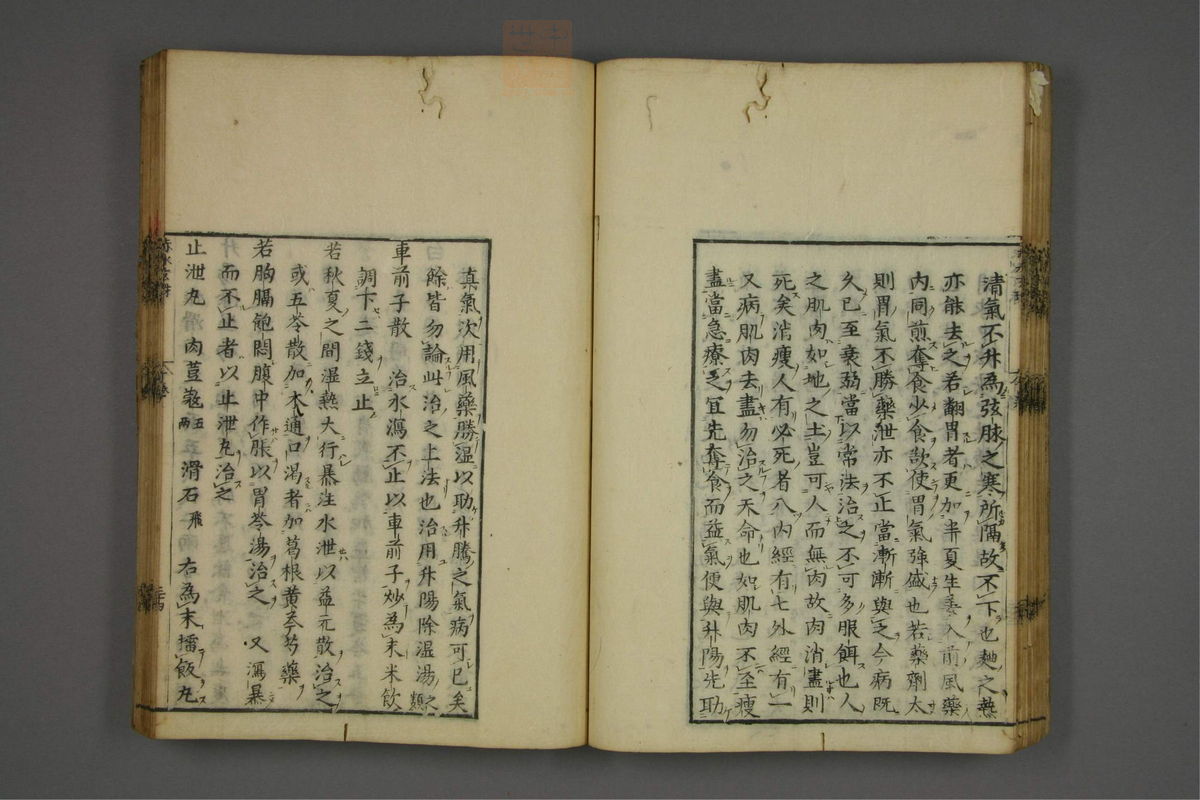 清氣不升為弦脉之寒所隔故不下也麯之熱
亦能去之若翻胃者更加半夏生姜入前風藥
内同煎奪食少食歓使胃氣強盛也若藥劑太
則胃氣不勝藥泄亦不正當漸漸與之今病既
久已至衰弱當以常法治之不可多服餌也人
之肌肉如地之土豈可人而無肉故肉消盡則
死矣消瘦人有必死者八内經有七外經有一
又病肌肉去盡勿治之天命也如肌肉不至瘦
盡當急療之宜先奪食而益氣便與升陽先助
真氣次用風藥勝湿以助升騰之氣病可已矣
餘皆勿論此治之上法也治用升陽除湿湯之類
車前子散 治水瀉不止以車前子炒為末米飲
調下二錢立止
若秋夏之間湿熱大行暴注水泄以益元散治之
或五苓散加木通口渴者加葛根黄芩芍藥
若胸膈飽悶腹中作脹以胃苓湯治之 又瀉暴
而不止者以止泄丸治之
止泄丸 滑肉荳蔲五両 滑石飛 右為末擂飯丸